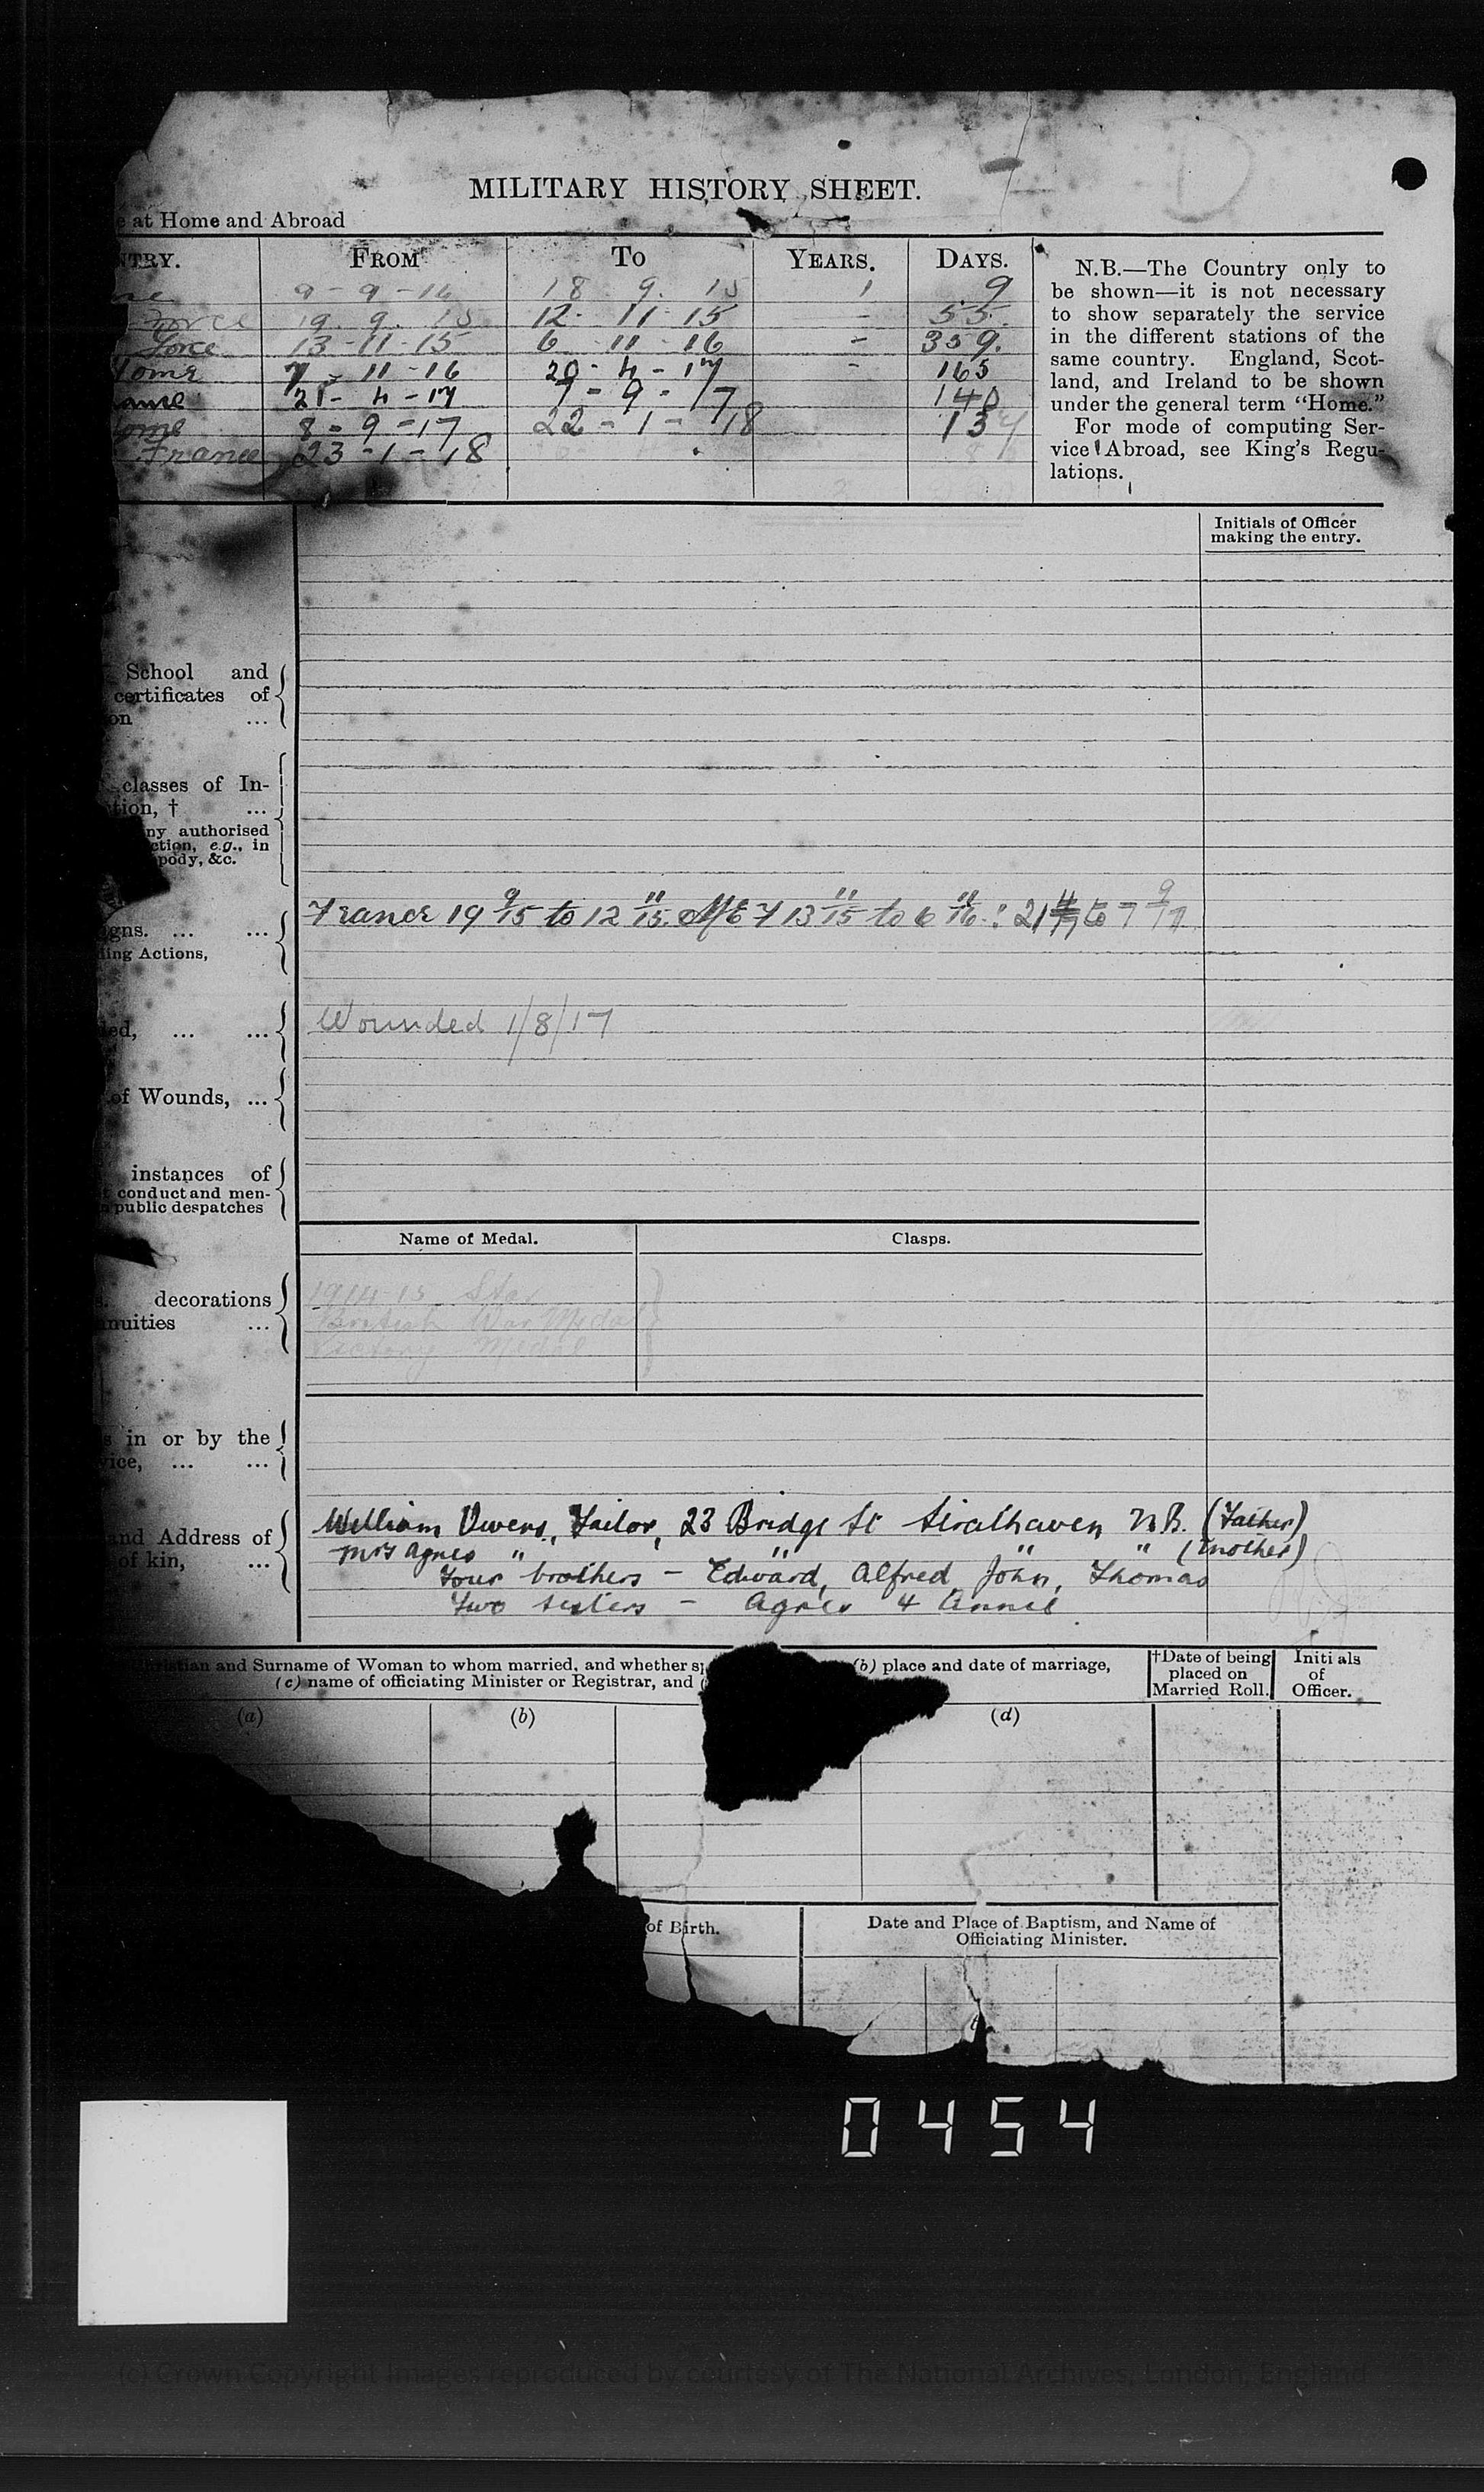 MILITARY HISTORY SHEET.
at Home and Abroad
NTRY. FROM TO YEARS. DAYS.
9-9-14 18. 9. 15 1 9
Force 19. 9. 15 12. 11-15 — 55.
Force 13-11-15 6-11-16 - 359.
Home 7-11-16 20-4-17 - 165
21-4-17 7-9-17 140
8-9-17 22-1-18 137
France 23-1-18
N.B.—The Country only to
be shown—it is not necessary
to show separately the service
in the different stations of the
same country. England, Scot-
land, and Ireland to be shown
under the general term “Home.”
For mode of computing Ser-
vice Abroad, see King's Regu-
lations.
Initials of Officer
making the entry.
School and
certificates of
on ...
classes of In-
tion, † ...
ny authorised
ction, e.g., in
pody, &c.
France 19 9/15 to 12 11/15. MEF 13 11/15 to 6 11/16 : 21 4/17 to 7 9/17
igns. ... ...
ding Actions,
Wounded 1/8/17
ed, ... ...
of Wounds, ...
instances of
conduct and men-
public despatches
Name of Medal. Clasps.
1914-15 Star
British War Medal
Victory Medal
decorations
nuities ...
s in or by the
vice, ... ...
William Owens, Tailor, 23 Bridge St Strathaven N.B. (Father)
Mrs Agnes " " " " (Mother)
Four brothers - Edward, Alfred, John, Thomas
Two sisters - Agnes & Annie
and Address of
of kin, ...
Christian and Surname of Woman to whom married, and whether sp (b) place and date of marriage,
(c) name of officiating Minister or Registrar, and (
†Date of being
placed on
Married Roll.
Initials
of
Officer.
(a) (b) (d)
of Birth.
Date and Place of Baptism, and Name of
Officiating Minister.
0454
(c) Crown Copyright Images reproduced by courtesy of The National Archives, London, England